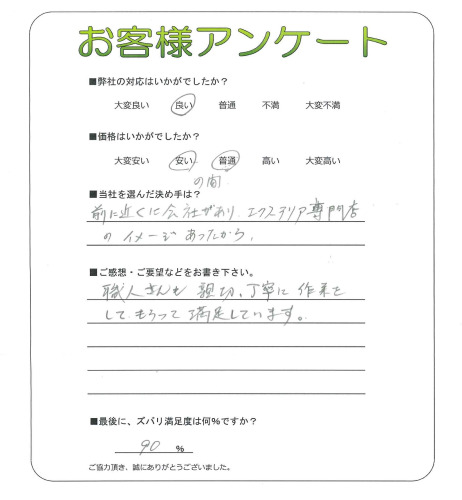 お客様アンケート
■弊社の対応はいかがでしたか？
大変良い 良い 普通 不満 大変不満
■価格はいかがでしたか？
大変安い 安い 普通 高い 大変高い
の間
■当社を選んだ決め手は？
前に近くに会社があり、エクステリア専門店
のイメージあったから。
■ご感想・ご要望などをお書き下さい。
職人さんも親切、丁寧に作業を
してもらって満足しています。
■最後に、ズバリ満足度は何%ですか？
90 %
ご協力頂き、誠にありがとうございました。